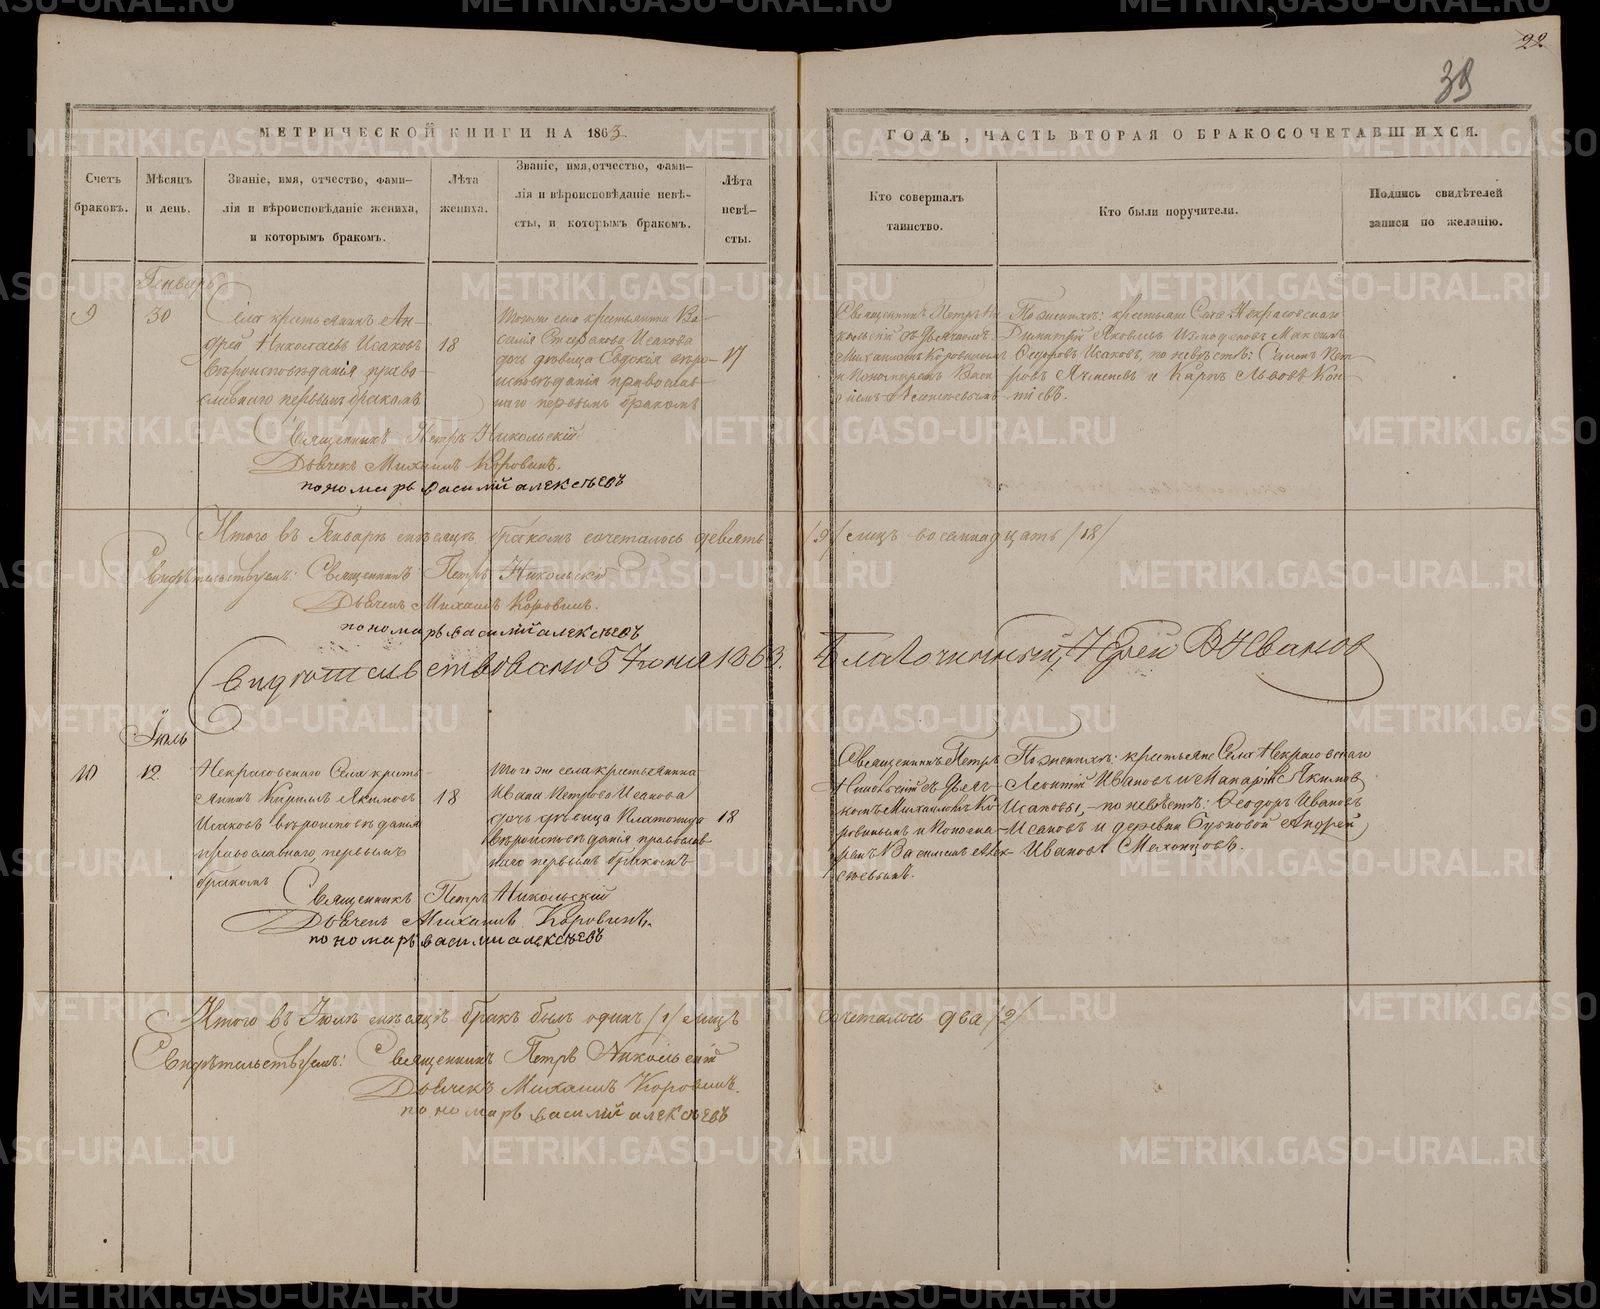 22
39
МЕТРИЧЕСКОЙ КНИГИ НА 1863
ГОДЪ, ЧАСТЬ ВТОРАЯ О БРАКОСОЧЕТАВШИХСЯ.
Счетъ
браковъ.
Мѣсяцъ
и день.
Званіе, имя, отчество, фами-
лія и вѣроисповѣданіе жениха,
и которымъ бракомъ.
Лѣта
жениха.
Званіе, имя, отчество, фами-
лія и вѣроисповѣданіе невѣ-
сты, и которымъ бракомъ.
Лѣта
невѣ-
сты.
Кто совершалъ
таинство.
Кто были поручители.
Подпись свидѣтелей
записи по желанію.
Генварь
9
30
Села крестьянинъ Ан-
дрей Николаевъ Исаковъ
вѣроисповѣданія право-
славнаго первымъ бракомъ
18
Тогоже села крестьянина Ва-
силія Стефанова Исакова
дочь дѣвица Евдокія вѣро-
исповѣданія православ-
наго первымъ бракомъ
17
Священникъ Петръ Ни-
кольскій съ Дьячкомъ
Михаиломъ Коровинымъ
и Пономаремъ Васи-
ліемъ Алексѣевымъ
По женихѣ: крестьяне Села Некрасовскаго
Димитрій Яковлевъ Измоденовъ Максимъ
Ѳедоровъ Исаковъ, по невѣстѣ: Симонъ Пет-
ровъ Ячменевъ и Карпъ Львовъ Коп-
тіевъ.
Священникъ Петръ Никольскій
Дьячекъ Михаилъ Коровинъ.
пономарь василий алексѣевъ
Итого въ Генварѣ мѣсяцѣ бракомъ сочеталось девять /9/ лицъ восемнадцать /18/
Свидѣтельствуемъ: Священникъ Петръ Никольскій
Дьячекъ Михаилъ Коровинъ.
пономарь василий алексѣевъ
Свидѣтельствовано 5 Июня 1863. Благочинный, Іерей В Ивановъ
Іюль
10
12
Некрасовскаго Села кресть-
янинъ Кирилъ Якимовъ
Исаковъ вѣроисповѣданія
православнаго, первымъ
бракомъ
18
Того же села крестьянина
Ивана Петрова Исакова
дочь дѣвица Платонида
вѣроисповѣданія православ-
наго первымъ бракомъ
18
Священникъ Петръ
Никольскій съ Дьяч-
комъ Михаиломъ Ко-
ровинымъ и Понома-
ремъ Василіемъ Алек-
сѣевымъ.
По женихѣ: крестьяне Села Некрасовскаго
Леонтій Ивановъ и Макарій Якимовъ
Исаковы, по невѣстѣ: Ѳеодоръ Ивановъ
Исаковъ и деревни Буньковой Андрей
Ивановъ Мехонцовъ.
Священникъ Петръ Никольскій
Дьячекъ Михаилъ Коровинъ.
пономарь василий алексѣевъ
Итого въ Іюлѣ мѣсяцѣ бракъ былъ одинъ /1/ лицъ сочеталось два /2/
Свидѣтельствуемъ: Священникъ Петръ Никольскій
Дьячекъ Михаилъ Коровинъ.
пономарь василий алексѣевъ
METRIKI.GASO-URAL.RU